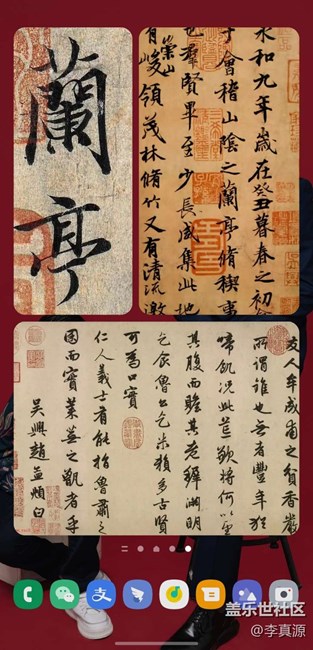 蘭亭
永和九年歲在癸丑暮春之初會
于會稽山陰之蘭亭脩稧事
也羣賢畢至少長咸集此地
有崇山峻領茂林脩竹又有清流激
友人牟成甫之貧香嚴
所謂錐也無者豐年猶
啼飢況此荒歉將何以望
其腹而贍其老穉淵明
乞食魯公乞米賴多古賢
可為口實
仁人義士有能指魯肅之
囷而實萊蕪之甑者乎
吳興趙孟頫白
盖乐世社区
@李真源